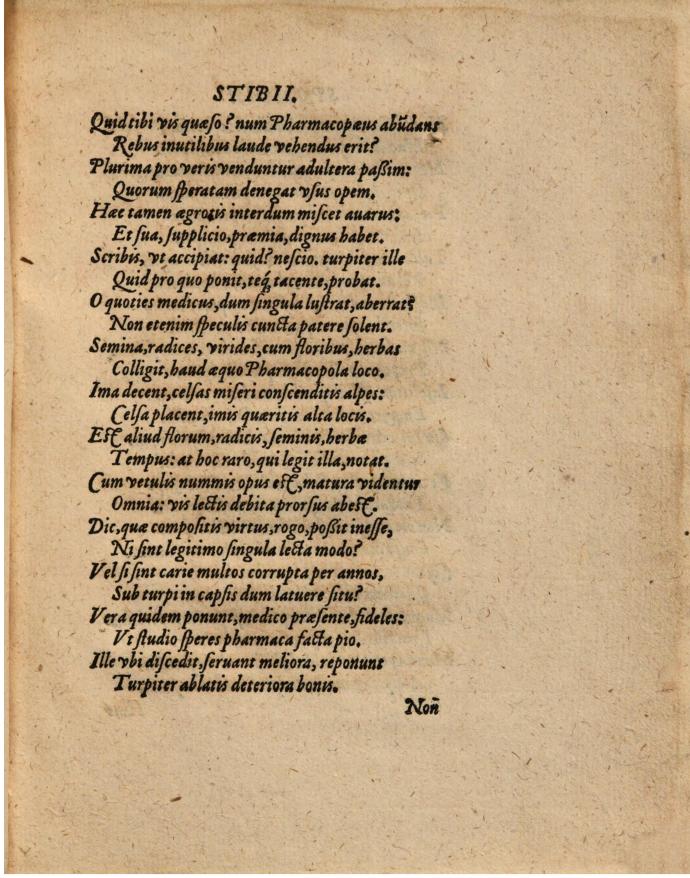 STIBII.
Quid tibi vis quæſo? num Pharmacopæus abũdans
Rebus inutilibus laude vehendus erit?
Plurima pro veris venduntur adultera paßim:
Quorum ſperatam denegat vſus opem.
Hæc tamen ægrotis interdum miſcet auarus:
Et ſua, ſupplicio, præmia, dignus habet.
Scribis, vt accipiat: quid? neſcio. turpiter ille
Quid pro quo ponit, teq́, tacente, probat.
O quoties medicus, dum ſingula luſtrat, aberrat?
Non etenim ſpeculis cuncta patere ſolent.
Semina, radices, virides, cum floribus, herbas
Colligit, haud æquo Pharmacopola loco.
Ima decent, celſas miſeri conſcenditis alpes:
Celſa placent, imis quæritis alta locis.
Eſt aliud florum, radicis, ſeminis, herbæ
Tempus: at hoc raro, qui legit illa, notat.
Cum vetulis nummis opus eſt, matura videntur
Omnia: vis lectis debita prorſus abeſt.
Dic, quæ compoſitis virtus, rogo, poßit ineſſe,
Ni ſint legitimo ſingula lecta modo?
Vel ſi ſint carie multos corrupta per annos,
Sub turpi in capſis dum latuere ſitu?
Vera quidem ponunt, medico præſente, fideles:
Vt ſtudio ſperes pharmaca facta pio.
Ille vbi diſcedit, ſeruant meliora, reponunt
Turpiter ablatis deteriora bonis.
Non̄